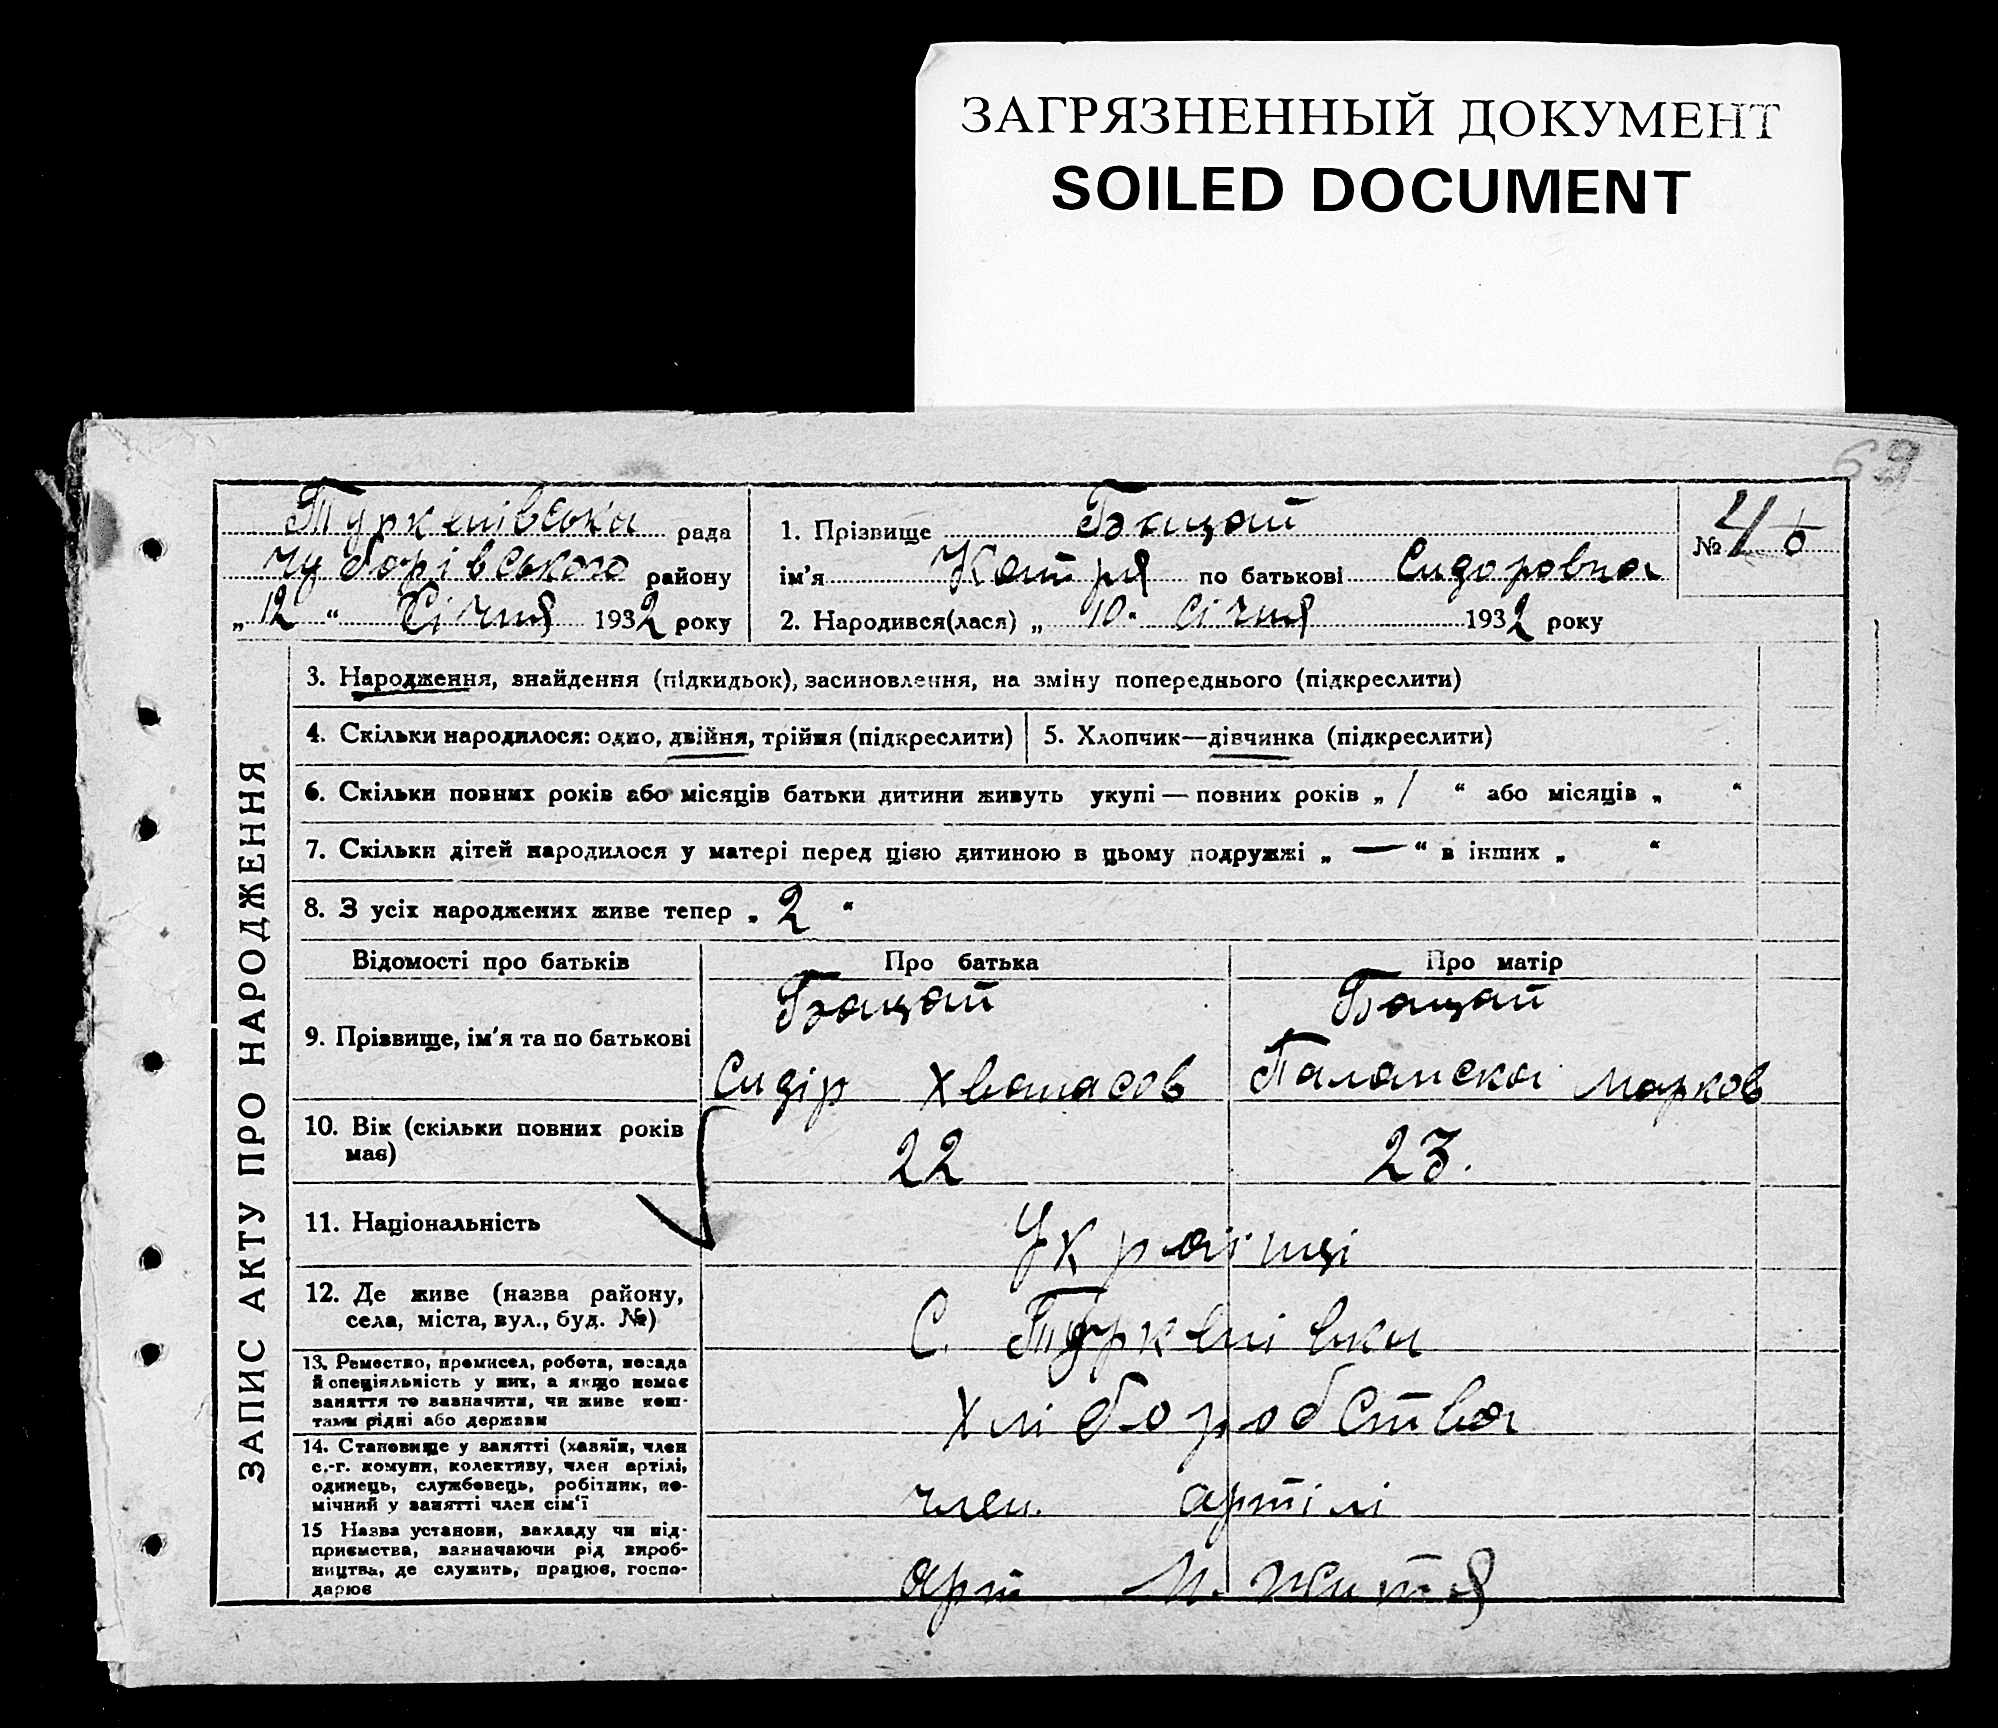 ЗАГРЯЗНЕННЫЙ ДОКУМЕНТ
SOILED DOCUMENT
69
Туркенівська рада
Чубарівського району
„ 12 “ Січня 1932 року
1. Прізвище Бацай
ім'я Катря по батькові Сидоровна
2. Народився(лася) „ 10 “ Січня 1932 року
№ 4
ЗАПИС АКТУ ПРО НАРОДЖЕННЯ
3. Народження, знайдення (підкидьок), засиновлення, на зміну попереднього (підкреслити)
4. Скільки народилося: одно, двійня, трійня (підкреслити)
5. Хлопчик—дівчинка (підкреслити)
6. Скільки повних років або місяців батьки дитини живуть укупі — повних років „ 1 “ або місяців „ “
7. Скільки дітей народилося у матері перед цією дитиною в цьому подружжі „ — “ в інших „ “
8. З усіх народжених живе тепер „ 2 “
Відомості про батьків Про батька Про матір
9. Прізвище, ім'я та по батькові
Бацай Бацай
Сидір Хванасов Паланска Марков
10. Вік (скільки повних років має) 22 23.
11. Національність Українці
12. Де живе (назва району,
села, міста, вул., буд. №) С. Туркенівка
13. Ремество, промисел, робота, посада
й спеціяльність у них, а якщо немає
заняття то зазначити, чи живе кош-
тами рідні або держави
Хліборобства
14. Становище у занятті (хазяїн, член
с.-г. комуни, колективу, член артілі,
одинець, службовець, робітник, по-
мічний у занятті член сім'ї
член артілі
15 Назва установи, закладу чи під-
приємства, зазначаючи рід вироб-
ництва, де служить, працює, госпо-
дарює
арт Н. Життя